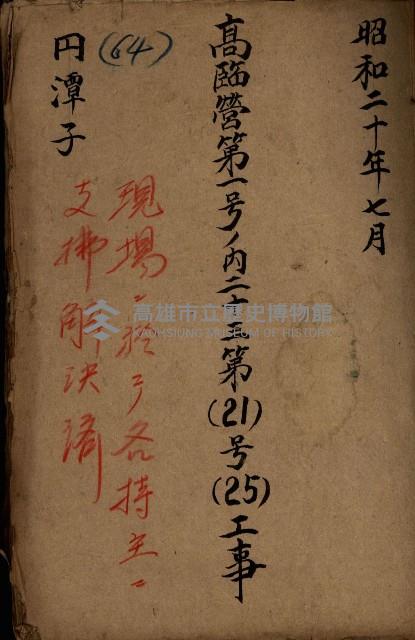 昭和二十年七月
高臨營第一号ノ內二十五第(21)号(25)工事
(64)
円潭子
現場ニ於テ各持主ニ
支拂解決済
高雄市立歷史博物館
KAOHSIUNG MUSEUM OF HISTORY